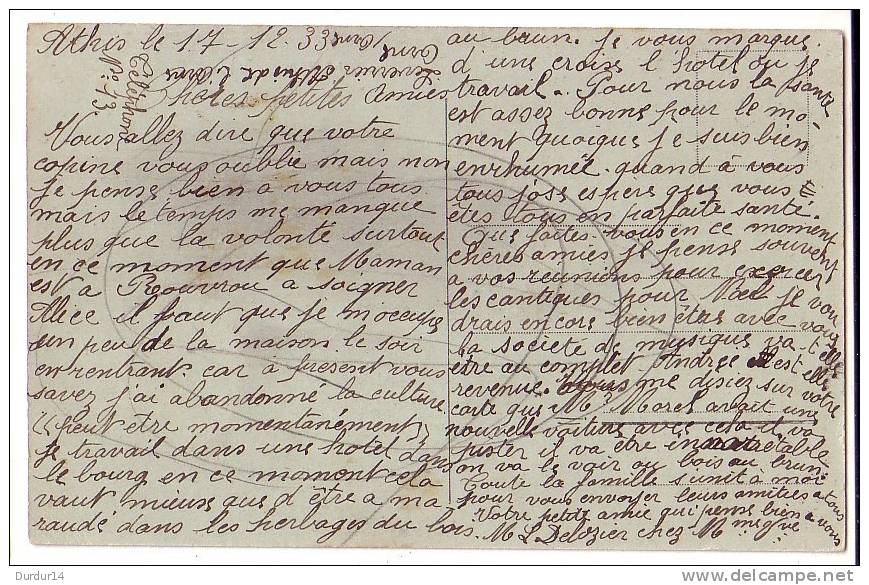 Athis le 17-12.33
Téléphone
No 13
Leverrier Athis de l'Orne
Orne
Chères petites Amies
Vous allez dire que votre
copine vous oublie mais non
je pense bien a vous tous
mais le temps me manque
plus que la volonté surtout
en ce moment que Maman
est a a soigner
Alice il faut que je m'occupe
un peu de la maison le soir
en rentrant car à présent vous
savez j'ai abandonné la culture
(peut etre momentanément)
je travail dans une hotel dans
le bourg en ce moment cela
vaut mieux que d'être a ma
raude dans les herbages du bois
au brun. je vous marque
d'une croix l'hotel ou je
travail. Pour nous la santé
est assez bonne pour le mo-
ment quoique je suis bien
enrhumée. quand à vous
tous j'ose espere que vous
êtes tous en parfaite santé.
Que faites-vous en ce moment
chères amies je pense souvent
a vos reunions pour exercer
les cantiques pour Noel je vou
drais encore bien etre avec vous
la societe de musique va-t-elle
etre au complet Andrée est elle
revenue. vous me disiez sur votre
carte que Mr Marel avait une
nouvelle voiture avec cela il va
pister il va être
on va le voir au bois au brun
toute la famille s'unit à moi
pour vous envoyer leurs amitiés a tous
Votre petite amie qui pense bien a vous
M L Delozier chez Mme
Durdur14
www.delcampe.net